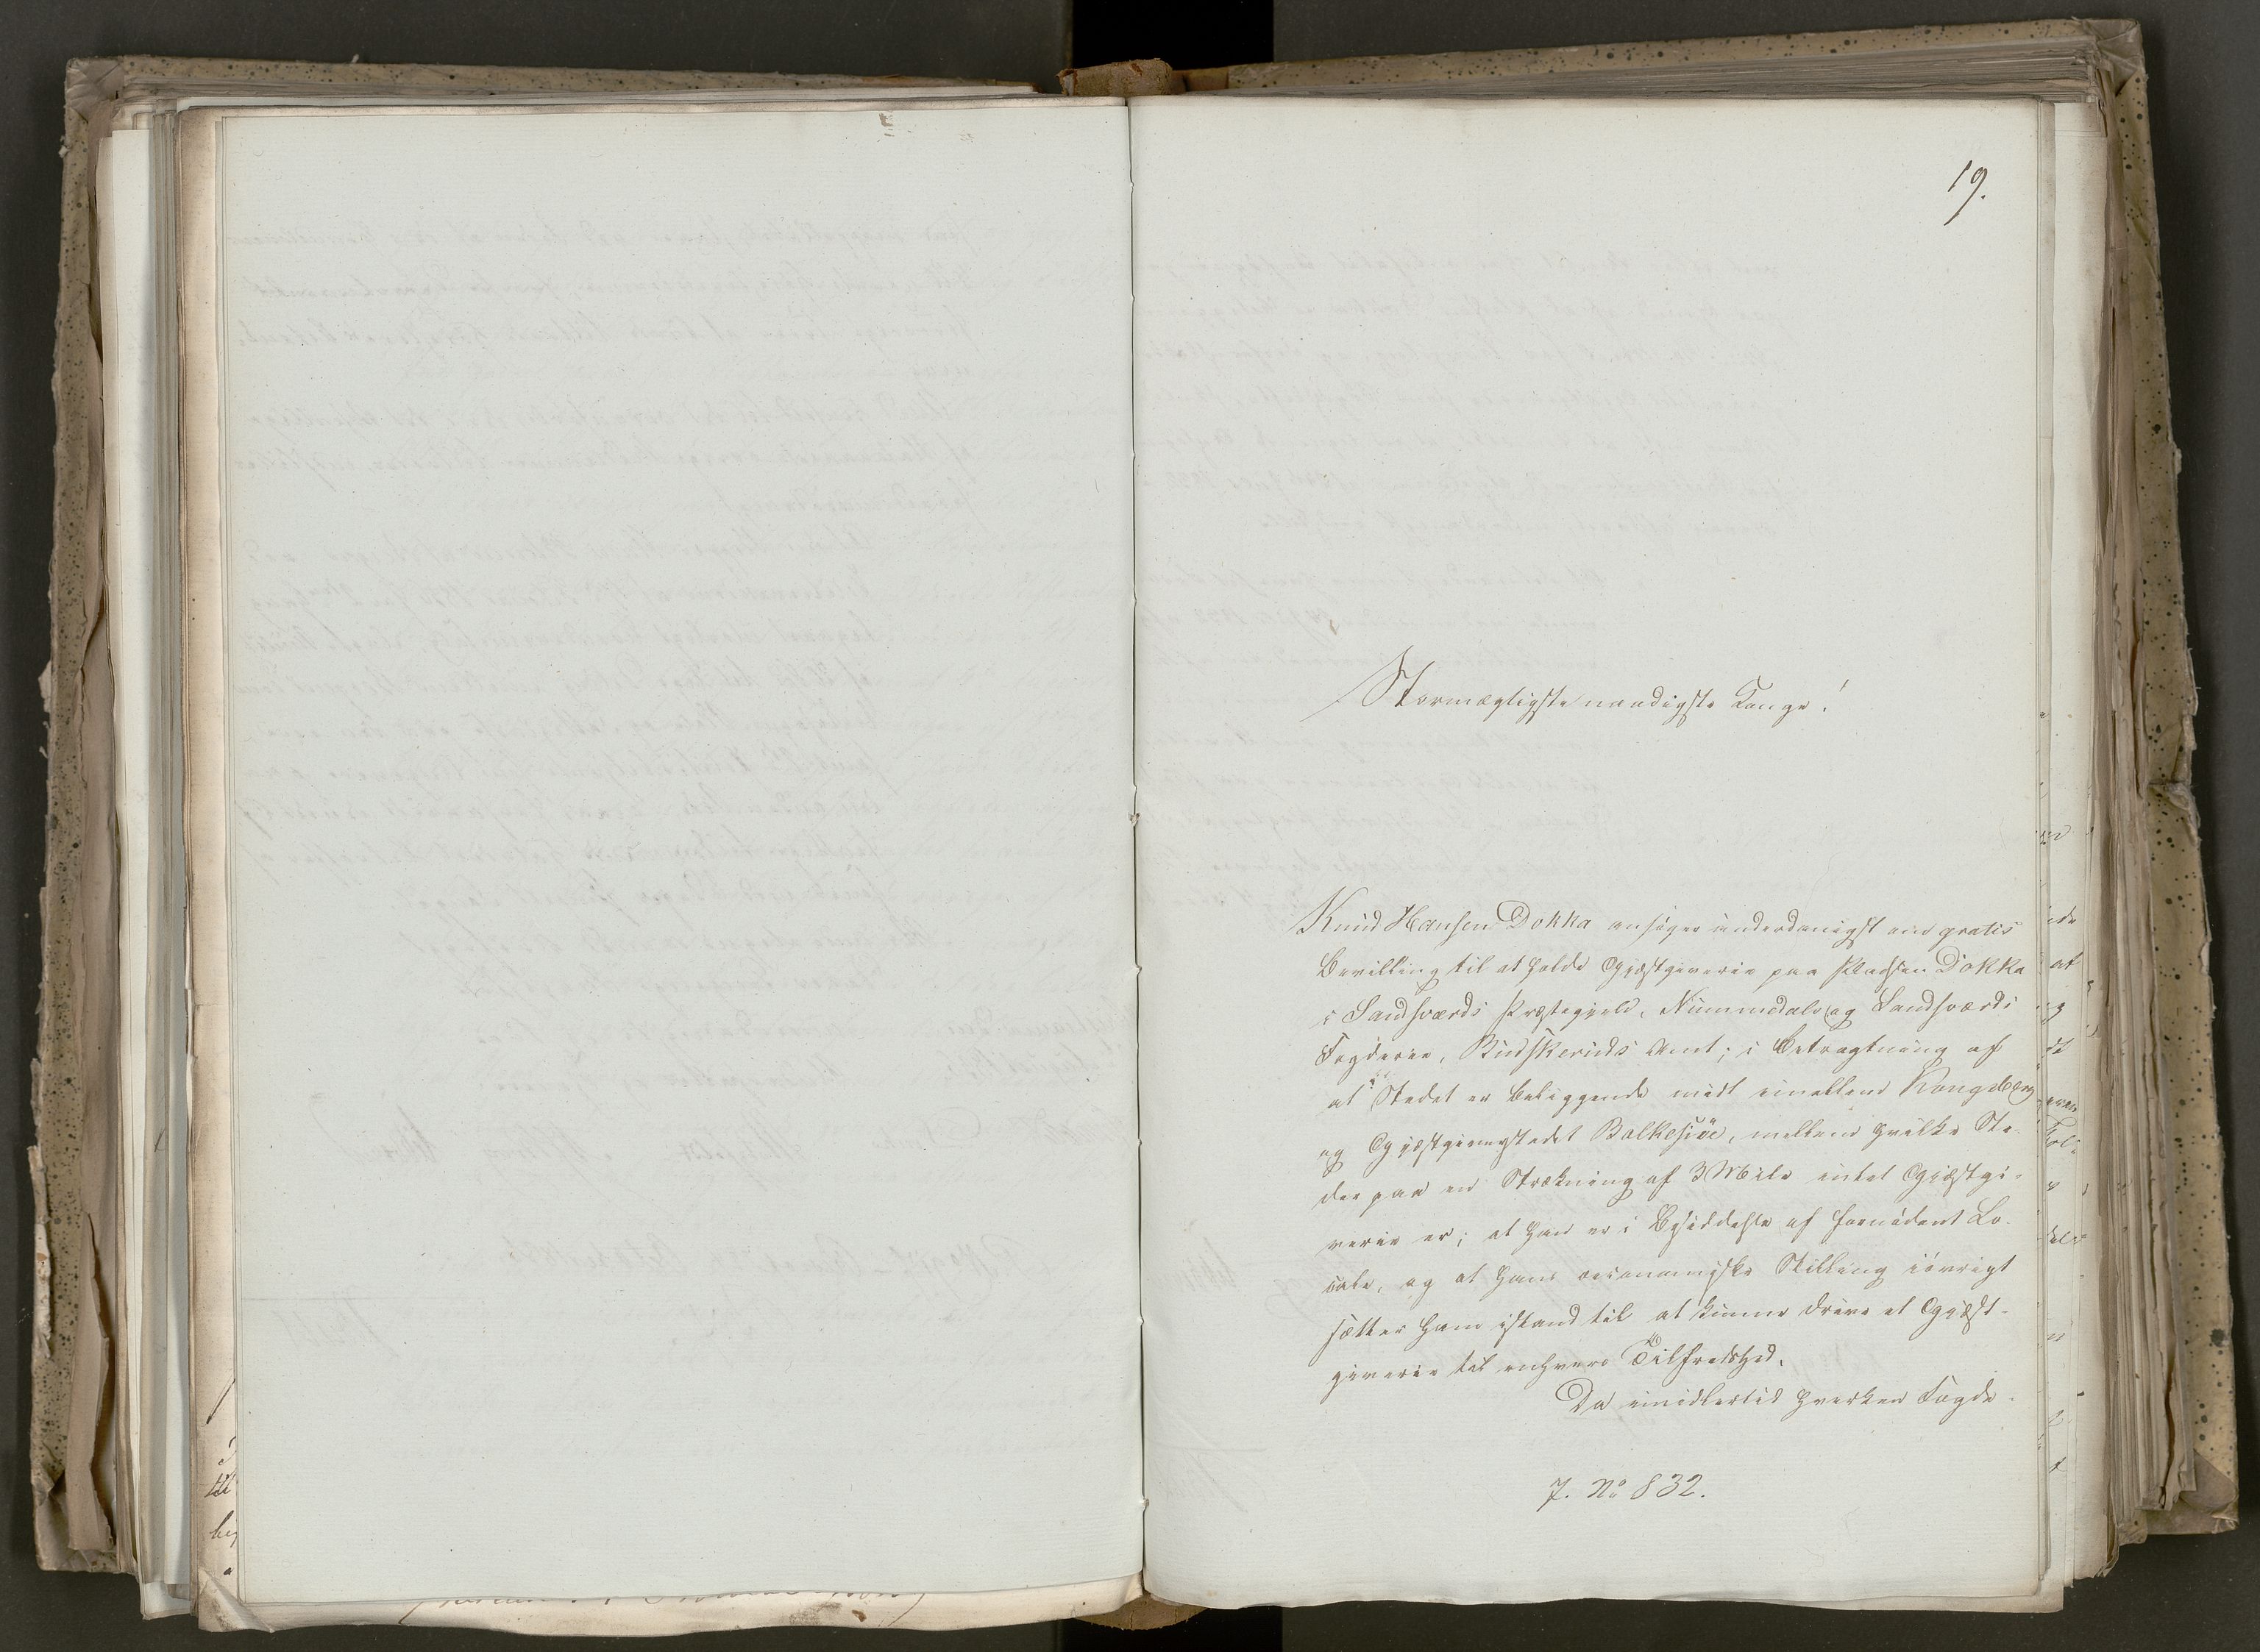 19.
Stormægtigste naadigste Konge!
Knud Hansen Dokka ansøger underdanigst om gratis
Bevilling til at holde Gjæstgiverie paa Pladsen Dokka
i Sandsværds Præstegjeld, Nummedals og Sandsværds
Fogderie, Budskeruds Amt; i Betragtning af
at Stedet er beliggende midt imellem Kongsberg
og Gjæstgiverstedet Bolkesjøe, mellem hvilke Ste-
der paa en Strækning af 3 Mile intet Gjæstgi-
verie er; at han er i Besiddelse af fornødent Lo-
cale, og at hans oeconomiske Stilling iøvrigt
sætter ham istand til at kunne drive et Gjæst-
giverie til enhvers Tilfredshed.
Da imidlertid hverken Fogde-
J. No 832.